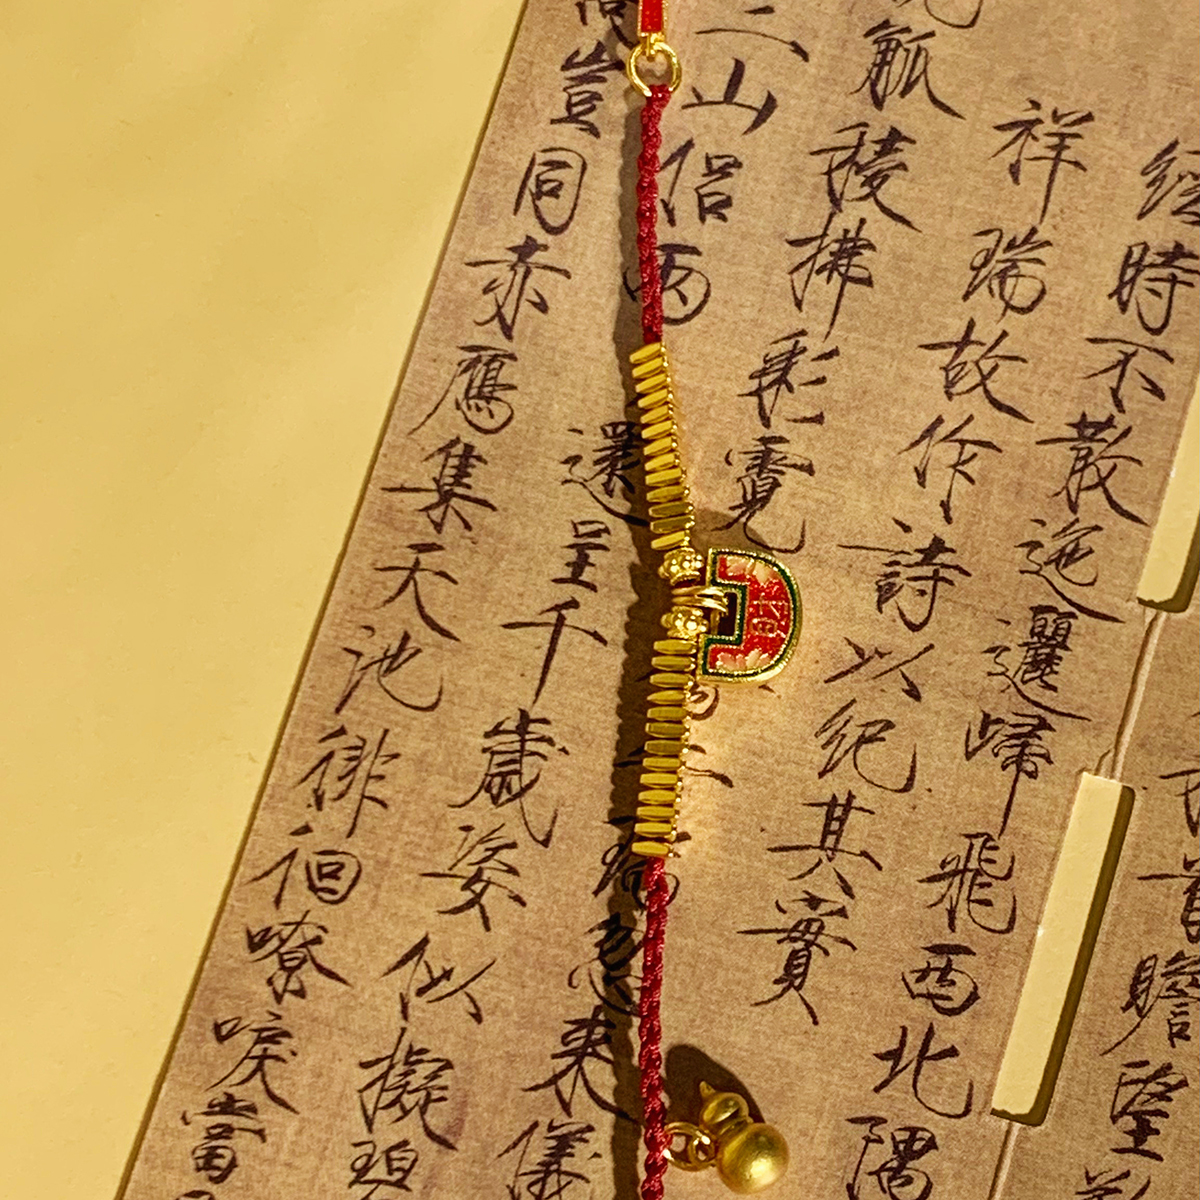 首瞻望
經時不散迤邐歸飛西北隅
祥瑞故作詩以紀其實
觚稜拂彩霓
瑞忽來儀
三山侶兩
還呈千歲姿似擬碧
豈同赤鴈集天池徘徊嘹唳當